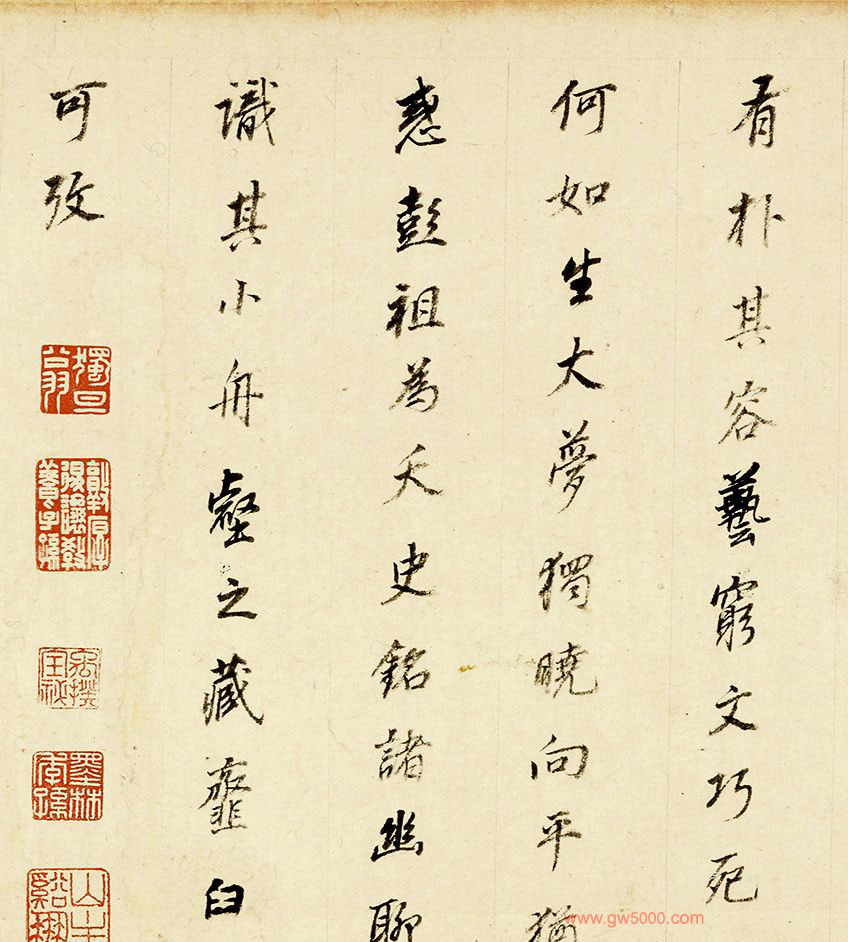 有朴其容藝窮文巧死
何如生大夢獨曉向平猶
惑彭祖為夭史銘諸幽聊
識其小舟壑之藏虀臼
可攷
墨林
山
www.gw5000.com